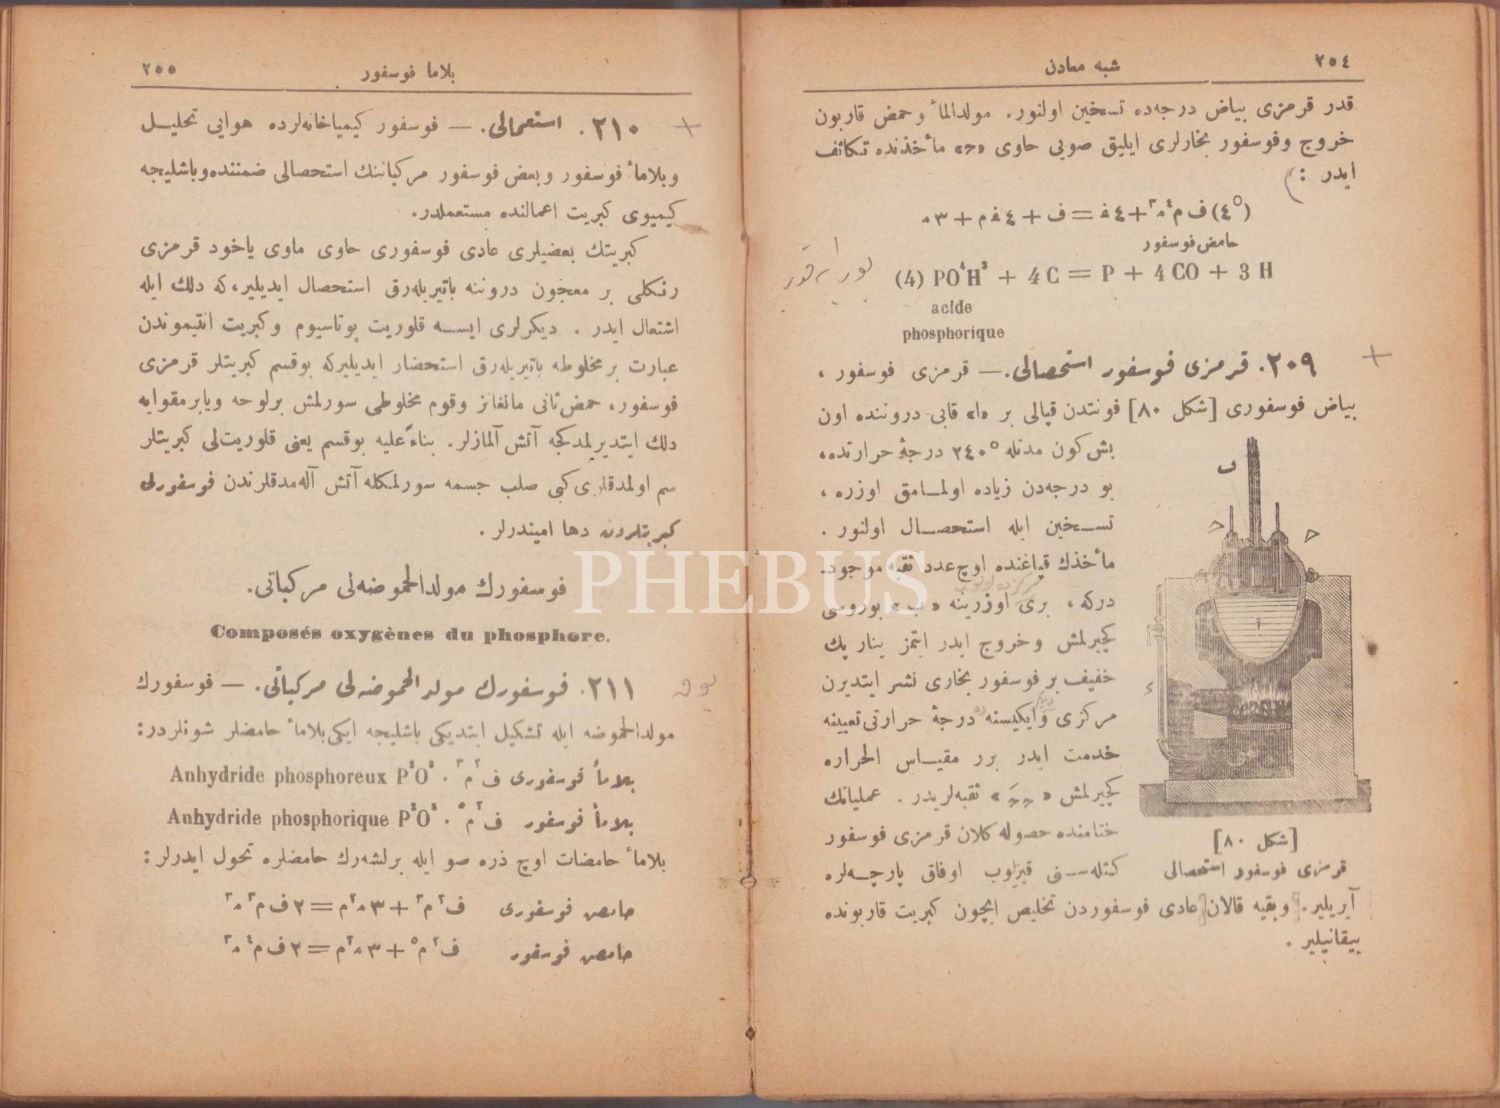 ٢٥٤
شبه معادن
قدر قرمزی بیاض درجه‌ده تسخین اولنور. مولدالماء و حمض قاربون
خروج وفوسفور بخارلری ایلیق صویی حاوی «ح» مأخذنده تکاثف
ایدر :
(٤°) ف م٤ ه٣ + ٤ ف = ف + ٤ ف م + ٣ ه
حامض فوسفور
(4) PO⁴H³ + 4 C = P + 4 CO + 3 H
acide
phosphorique
٢٠٩. قرمزی فوسفور استحصالی. — قرمزی فوسفور ،
بیاض فوسفوری [شکل ٨٠] فونتدن قپالی بر «ا» قابی دروننده اون
بش کون مدتله ٢٤٠° درجهٔ حرارتده،
بو درجه‌دن زیاده اولمامق اوزره ،
تسخین ایله استحصال اولنور .
مأخذك قپاغنده اوچ عدد ثقبه موجود.
درکه ، بری اوزرینه «ب» بوروسی
کچیرلمش و خروج ایدر ایتمز ینار پك
خفیف بر فوسفور بخاری نشر ایتدیرن
مرکزی و ایکیسنه درجهٔ حرارتی تعیینه
خدمت ایدر برر مقیاس الحراره
کچیرلمش « » ثقبه‌لریدر . عملیاتك
ختامنده حصوله کلان قرمزی فوسفور
[شکل ٨٠]
قرمزی فوسفور استحصالی
کتله‌سنی قیریلوب اوفاق پارچه‌لره
آیریلیر. وبقیه قالان عادی فوسفوردن تخلیص ایچون کبریت قاربونده
ییقانیلیر .
بلاما فوسفور
٢٥٥
٢١٠. استعمالی. — فوسفور کیمیاخانه‌لرده هوایی تحلیل
وبلاماء فوسفور وبعض فوسفور مرکباتنك استحصالی ضمننده وباشلیجه
کیمیوی کبریت اعمالنده مستعملدر.
کبریتك بعضیلری عادی فوسفوری حاوی ماوی یاخود قرمزی
رنکلی بر معجون دروننه باتیریله‌رق استحصال ایدیلیر، که دلك ایله
اشتعال ایدر . دیکرلری ایسه قلوریت پوتاسیوم وکبریت انتیموندن
عبارت بر مخلوطه باتیریله‌رق استحضار ایدیلیرکه بوقسم کبریتلر قرمزی
فوسفور، حمض ثانی مانغانز وقوم مخلوطی سورلمش برلوحه ویابرمقوایه
دلك ایتدیرلمدکجه آتش آلمازلر. بناءً علیه بوقسم یعنی قلوریت‌لی کبریتلر
سم اولمدقلری کبی صلب جسمه سورلمکله آتش آله‌مدقلرندن فوسفورلی
کبریتلردن دها امیندرلر .
فوسفورك مولدالحموضه‌لی مرکباتی.
Composés oxygènes du phosphore.
٢١١. فوسفورك مولدالحموضه‌لی مرکباتی. — فوسفورك
مولدالحموضه ایله تشکیل ایتدیکی باشلیجه ایکی بلاماء حامضلر شونلردر:
بلاماء فوسفوری ف٢ م٣ . Anhydride phosphoreux P²O³
بلاماء فوسفور ف٢ م٥ . Anhydride phosphorique P²O⁵
بلاماء حامضات اوچ ذره صو ایله برلشه‌رك حامضلره تحول ایدرلر :
حامض فوسفوری ف٢ م٣ + ٣ ه٢ م = ٢ ف م٣ ه٣
حامض فوسفور ف٢ م٥ + ٣ ه٢ م = ٢ ف م٤ ه٣
PHEBUS